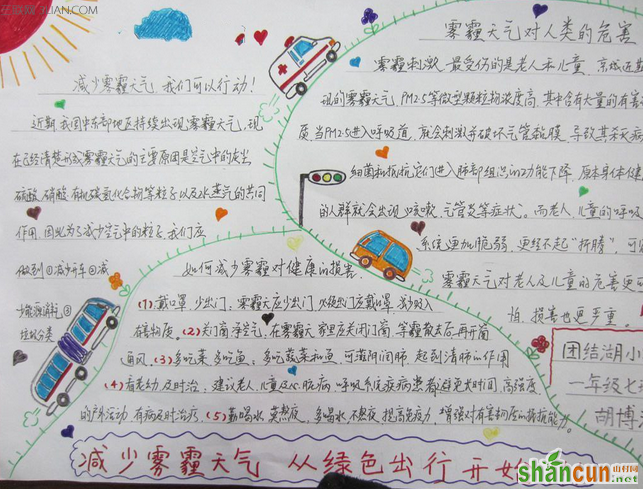 减少雾霾天气,我们可以行动!
近期我国中东部地区持续出现雾霾天气,现
在已经清楚形成雾霾天气的主要原因是空气中的灰尘、
硫酸、硝酸、有机碳氢化合物等粒子以及水蒸气的共同
作用,因此为了减少空气中的粒子,我们应
做到①减少开车②减
少燃放
③
垃圾分类
雾霾天气对人类的危害
雾霾刺激,最受伤的是老人和儿童,京城近期
现的雾霾天气,PM2.5等微型颗粒物浓度高,其中含有大量的有害
质,当PM2.5进入呼吸道,就会刺激并破坏气管黏膜,导致其杀灭病
细菌和抵抗它们进入肺部组织的功能下降,原本身体健
的人群就会出现"咳嗽、气管炎等症状"。而老人、儿童的呼吸
系统更加脆弱,更经不起"折腾",可
雾霾天气对老人及儿童的危害更可
怕,损害也更严重。
如何减少雾霾对健康的损害
(1)戴口罩,少出门:雾霾天应少出门,必须出门应戴口罩,减少吸入
有害物质。(2)关门窗,净空气:在雾霾天家里应关闭门窗,等霾散去后再开窗
通风。(3)多吃菜,多吃鱼:多吃蔬菜和鱼,可滋阴润肺,起到清肺的作用
(4)有老幼,及时治:建议老人、儿童及心脏病、呼吸系统疾病患者避免长时间、高强度
的户外运动,有病及时治疗。(5)勤喝水,莫熬夜:多喝水,不熬夜,提高免疫力,增强对有害物质的抵抗能力。
团结湖小
一年级七
胡博
减少雾霾天气 从绿色出行开始
shancun
山村网
.net